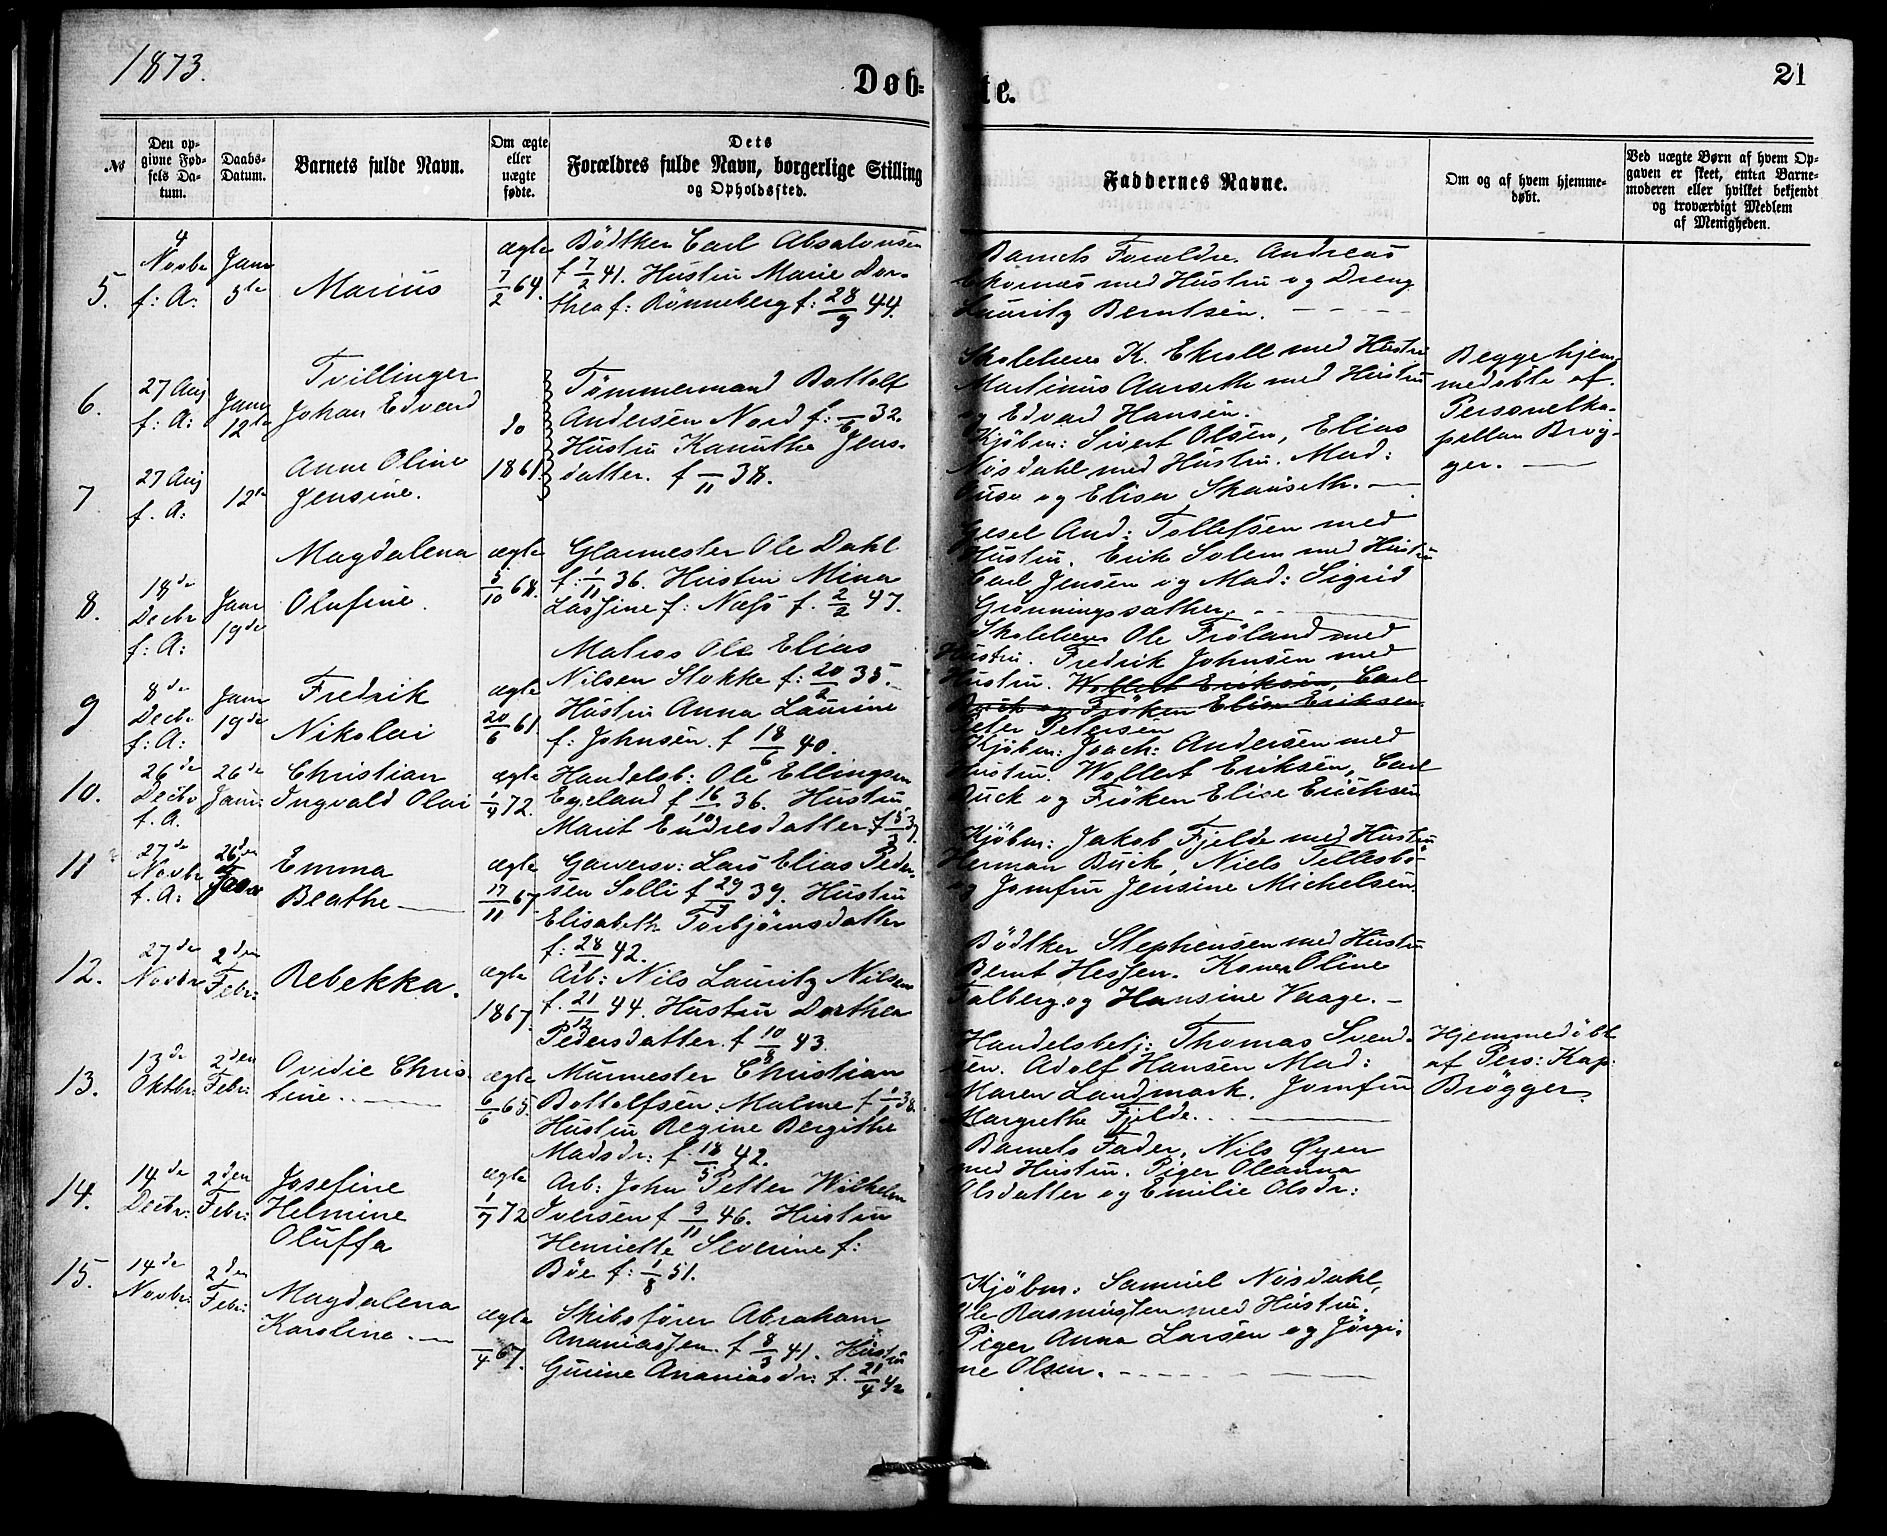 1873.
Døb-
te.
21
№
Den op-
givne Fød-
sels Da-
tum.
Daabs-
Datum.
Barnets fulde Navn.
Om ægte
eller
uægte
fødte.
Dets
Forældres fulde Navn, borgerlige Stilling
og Opholdssted.
Faddernes Navne.
Om og af hvem hjemme-
døbt.
Ved uægte Børn af hvem Op-
gaven er skeet, enten Barne-
moderen eller hvilket bekjendt
og troværdigt Medlem
af Menigheden.
5.
4
Novbr
f: A:
Janr
5te
Marius
ægte
7/2 64.
Bödtker Carl Absalonsen
f 7/2 41. Hustru Marie Dor-
thea f: Rönneberg f: 28/9 44.
Barnets Forældre. Andreas
Ekornæs med Hustru og Dreng
Lauritz Berntsen.
6.
27 Aug
f: A:
Janr
12te
Tvillinger
Johan Edvard
do
1861.
Tømmermand Bottolf
Andersen Nord f: /6 32.
Hustru Kanutha Jens-
datter. f /11 38.
Skolelærer K. Ekroll med Hustru
Martinus Aarseth med Hustru
og Edvard Hansen.
Begge hjem-
medøbte af
Personelka-
pellan Brøg-
ger.
7.
27 Aug
f. A:
12te
Anne Oline
Jensine.
Kjöbm: Sivert Olsen, Elias
Nøsdahl med Hustru. Mad:
Buse og Elisa Skarseth.
8.
18de
Decbr
f: A:
Janr
19de
Magdalena
Olufine.
ægte
5/10 68.
Glarmester Ole Dahl
f: 1/11 36. Hustru Mina
Lassine f: Næss f. 2/2 47.
Gesel And: Tollefsen med
Hustru. Erik Solem med Hustru
Carl Jensen og Mad: Sigrid
Grönningssæther.
9
8de
Decbr
f: A:
Janr
19de
Fredrik
Nikolai
ægte
20/6 61.
Matros Ole Elias
Nilsen Stokke f: 20/2 35.
Hustru Anna Laurine
f: Johnsen. f 18/6 40.
Skolelærer Ole Fröland med
Hustru. Fredrik Johnsen med
Hustru. Wollert Eriksen, Carl
Buck og Fröken Elise Eriksen
Peter Petersen
10.
26de
Decbr
f. A.
26de
Janr.
Christian
Ingvald Olai
ægte
1/4 72.
Handelsb: Ole Ellingsen
Egeland f 16/10 36. Hustru
Marit Endresdatter f 5/3 37.
Kjöbm: Joach: Andersen med
Hustru. Wollert Eriksen, Carl
Buck og Fröken Elise Erichsen
11
27de
Novbr
f. A:
26den
Janr
Emma
Beathe
ægte
17/11 67.
Garversv: Lars Elias Peder-
sen Solli f 29/7 39. Hustru
Elisabeth Torbjörnsdatter
f: 28/11 42.
Kjöbm: Jakob Fjelde med Hustru
Herman Buck, Niels Tellesbö
og Jomfru Jensine Michelsen.
12.
27de
Novbr
2den
Febr:
Rebekka.
ægte
1867.
Arb: Nils Lauritz Nilsen
f. 21/12 44. Hustru Dorthea
Pedersdatter. f 10/8 43.
Bödtker Stephensen med Hustru
Bernt Hessen. Konen Oline
Talberg og Hansine Vaage.
13.
13de
Oktbr:
2den
Febr:
Ovidie Chris-
tine.
ægte
6/6 65.
Murmester Christian
Bottolfsen Malme f 1/1 38.
Hustru Regine Bergithe
Madsdr: f. 18/5 42.
Handelsbetj: Thomas Svend-
sen. Adolf Hansen Mad:
Maren Landmark. Jomfru
Margrethe Fjelde.
Hjemmedöbt
af Pers: Kap:
Brögger.
14.
14de
Decbr:
2den
Febr:
Josefine
Helmine
Oluffa
ægte
1/7 72
Arb: John Petter Wilhelm
Iversen f 9/11 46. Hustru
Henriette Severine f:
Böe f: 1/8 51.
Barnets Fader, Nils Øyen
med Hustru. Piger Oleanna
Olsdatter og Emilie Olsdr:
15.
14de
Novbr:
2den
Febr:
Magdalena
Karoline.
ægte
/4 67.
Skibsförer Abraham
Ananiassen. f 8/3 41. Hustru
Gurine Ananiasdr: f. 21/4 42
Kjöbm: Samuel Nøsdahl,
Ole Rasmussen med Hustru.
Piger Anna Larsen og Jörgi-
ne Olsen.